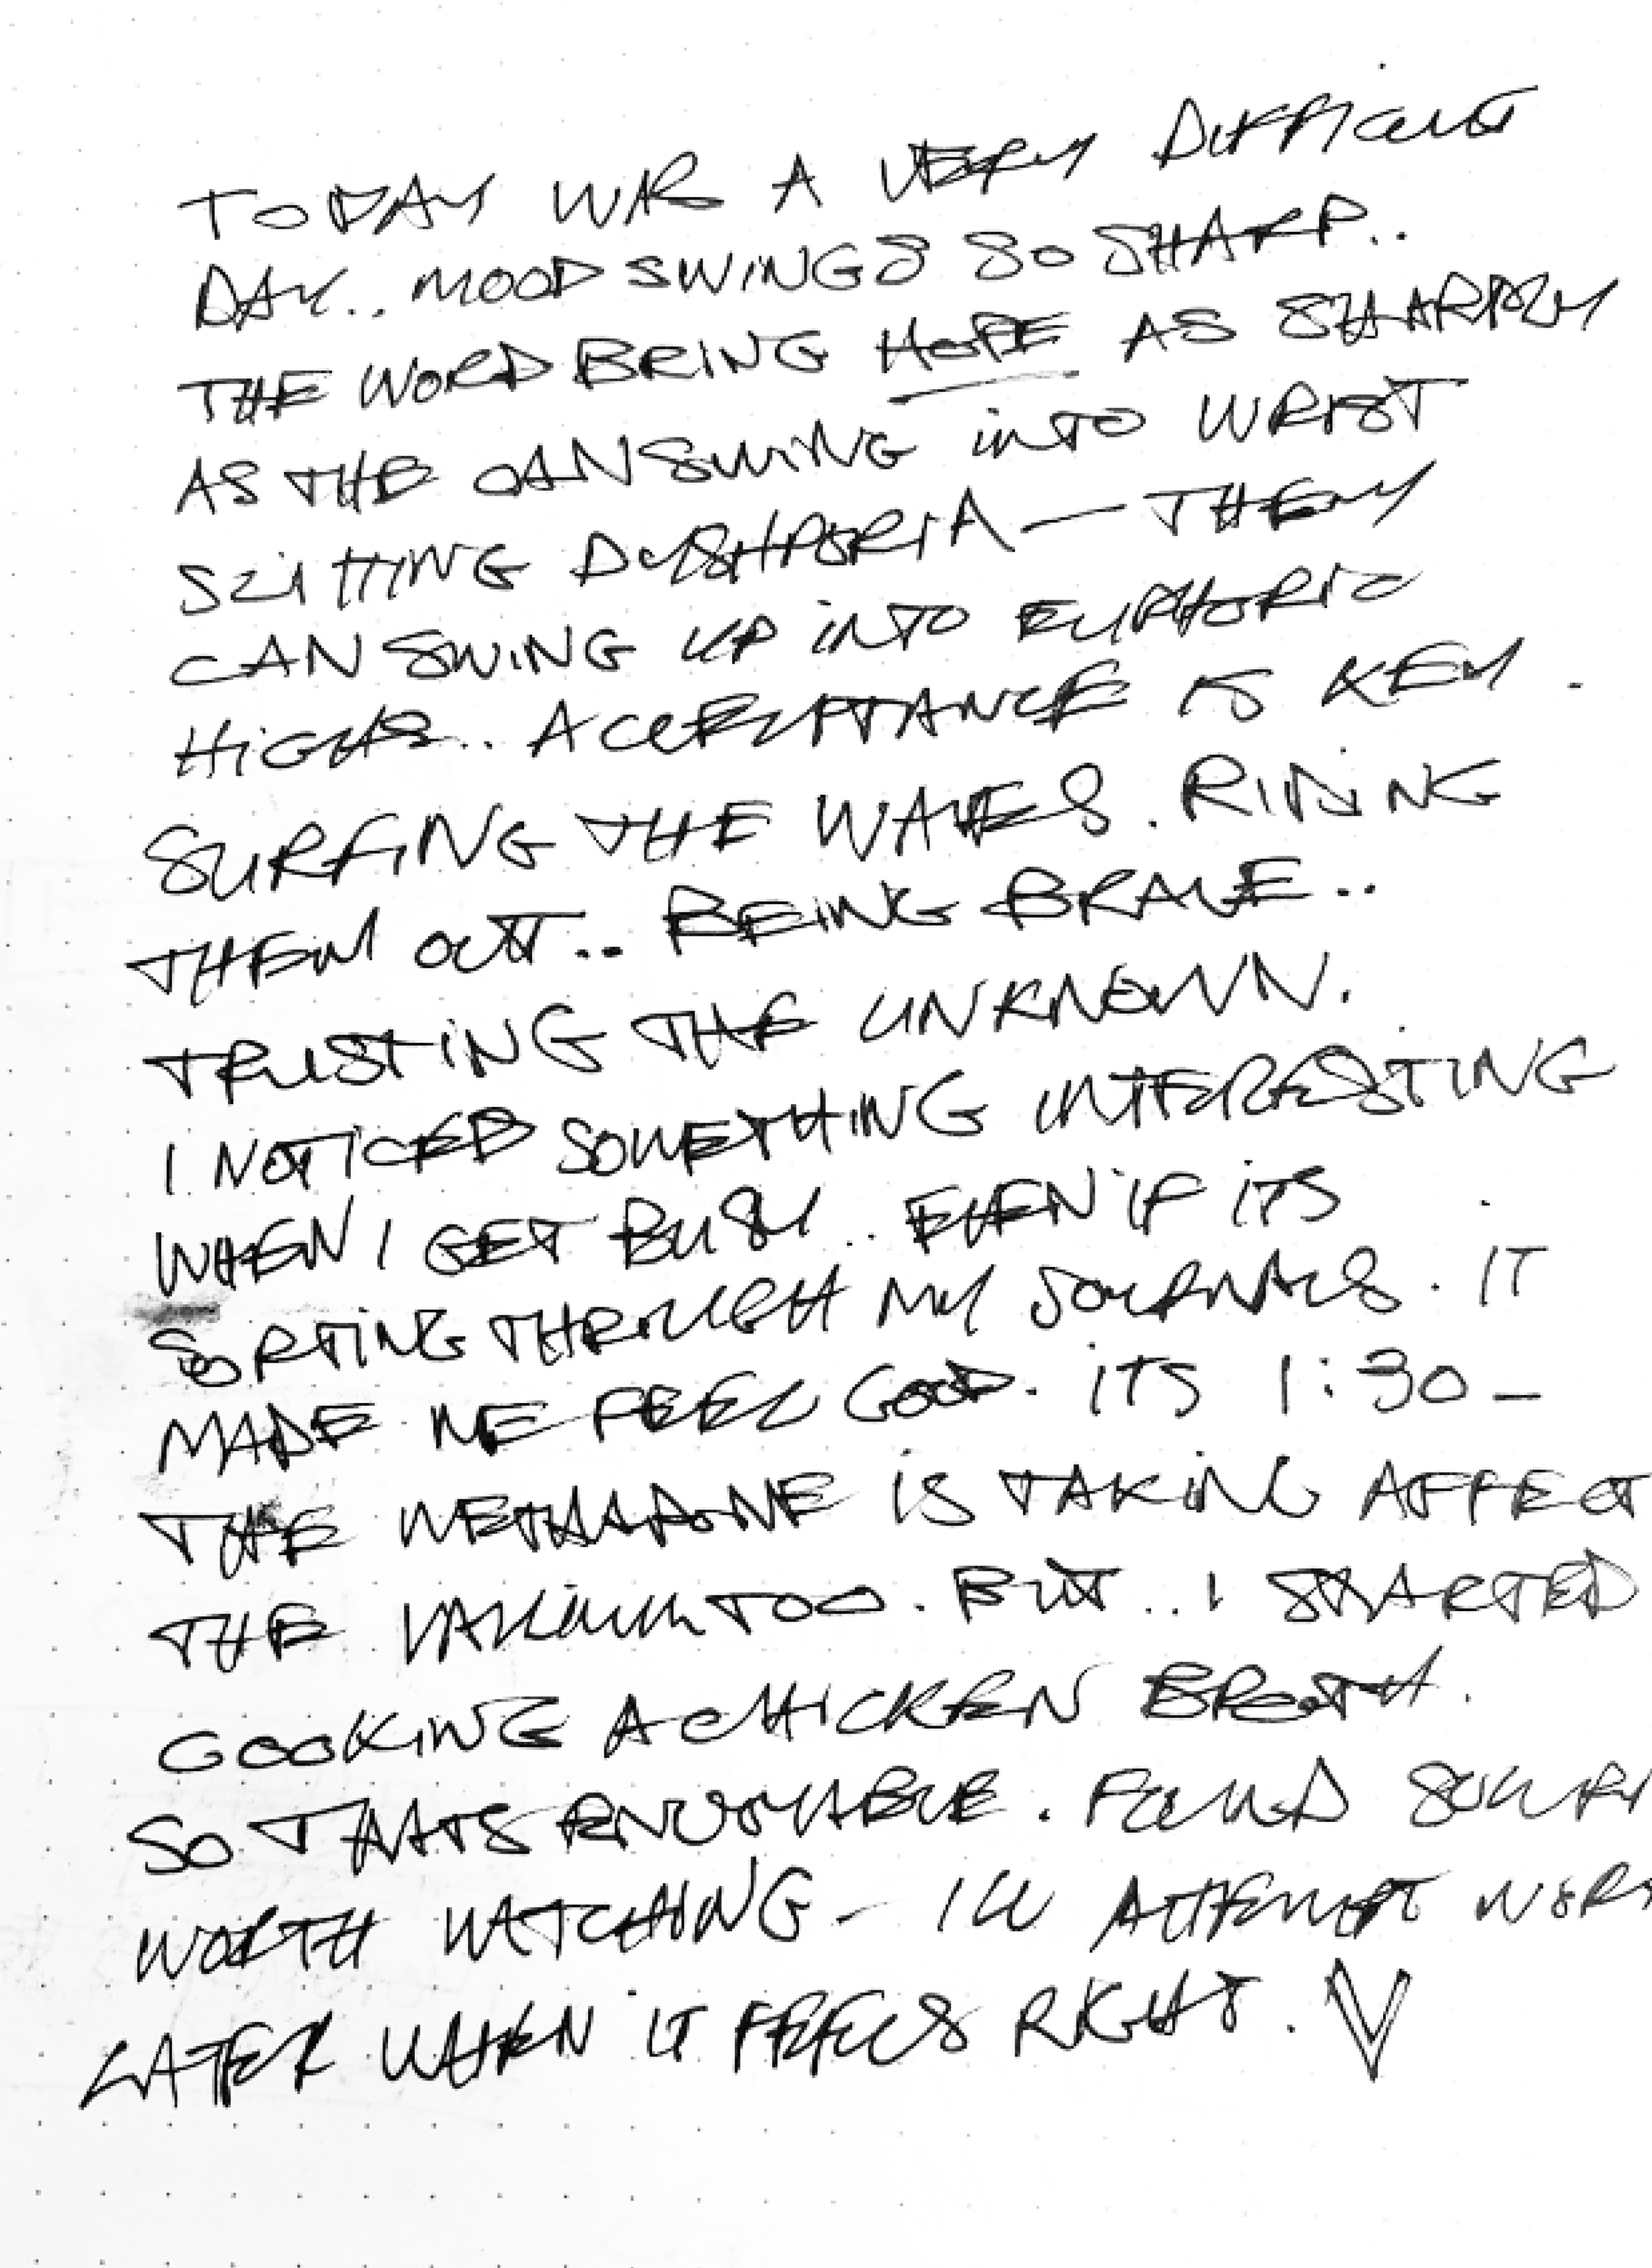 TODAY WAS A VERY DIFFICULT
DAY.. MOOD SWINGS SO SHARP..
THE WORD BRING HOPE AS SHARPLY
AS THE CAN SWING INTO WRIST
SLITTING DYSHPORIA — THEY
CAN SWING UP INTO EUPHORIC
HIGHS.. ACCEPTANCE IS KEY.
SURFING THE WAVES. RIDING
THEM OUT.. BEING BRAVE..
TRUSTING THE UNKNOWN.
I NOTICED SOMETHING INTERESTING
WHEN I GET BUSY.. EVEN IF ITS
SORTING THROUGH MY JOURNALS. IT
MADE ME FEEL GOOD. ITS 1:30 –
THE METHADONE IS TAKING AFFECT
THE VALIUM TOO. BUT.. I STARTED
COOKING A CHICKEN BROTH.
SO THATS ENJOYABLE. FOUND
WORTH WATCHING – ILL ATTEMPT
LATER WHEN IT FEELS RIGHT.